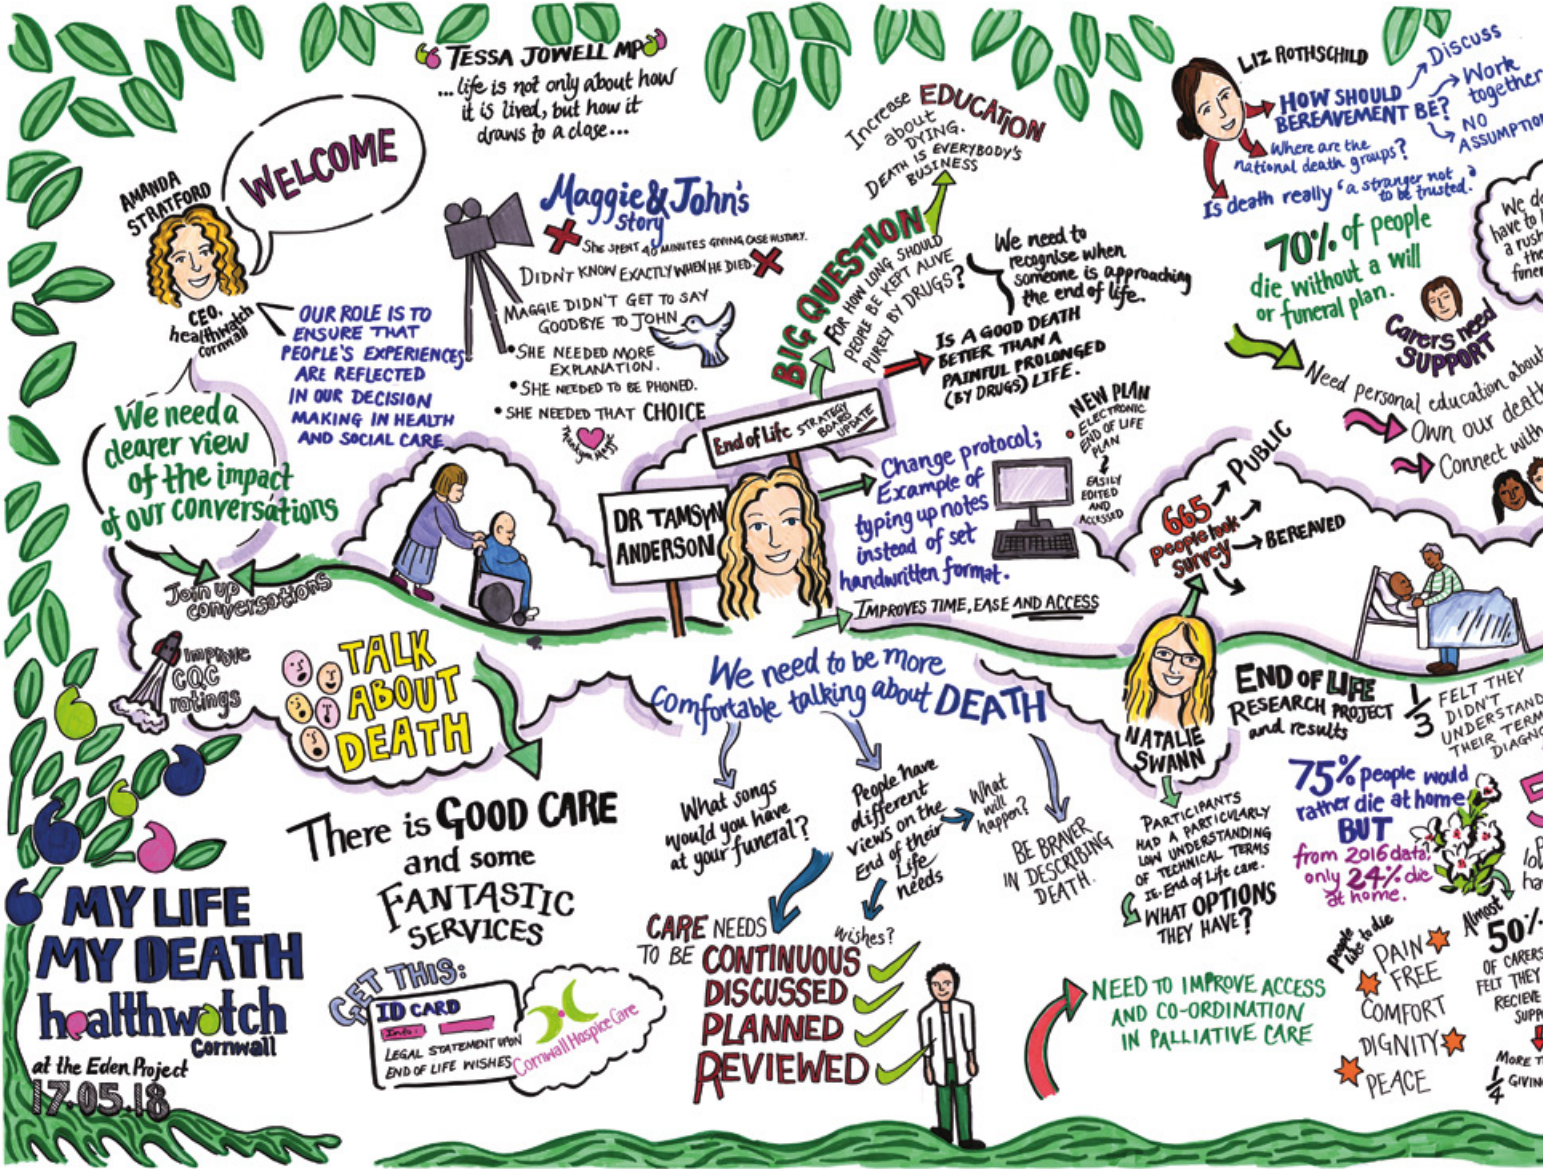 TESSA JOWELL MP
...life is not only about how
it is lived, but how it
draws to a close...
AMANDA
STRATFORD
WELCOME
CEO,
healthwatch
Cornwall
OUR ROLE IS TO
ENSURE THAT
PEOPLE'S EXPERIENCES
ARE REFLECTED
IN OUR DECISION
MAKING IN HEALTH
AND SOCIAL CARE
We need a
clearer view
of the impact
of our conversations
Join up
conversations
improve
CQC
ratings
TALK
ABOUT
DEATH
Maggie & John's
Story
SHE SPENT 48 MINUTES GIVING CASE HISTORY.
DIDN'T KNOW EXACTLY WHEN HE DIED.
MAGGIE DIDN'T GET TO SAY
GOODBYE TO JOHN
• SHE NEEDED MORE
EXPLANATION.
• SHE NEEDED TO BE PHONED.
• SHE NEEDED THAT CHOICE
Thankyou Maggie
Increase EDUCATION
about
DYING.
DEATH IS EVERYBODY'S
BUSINESS
BIG QUESTION
FOR HOW LONG SHOULD
PEOPLE BE KEPT ALIVE
PURELY BY DRUGS?
We need to
recognise when
someone is approaching
the end of life.
IS A GOOD DEATH
BETTER THAN A
PAINFUL PROLONGED
(BY DRUGS) LIFE.
End of Life STRATEGY
BOARD
UPDATE
DR TAMSYN
ANDERSON
Change protocol;
Example of
typing up notes
instead of set
handwritten format.
NEW PLAN
• ELECTRONIC
END OF LIFE
PLAN
EASILY
EDITED
AND
ACCESSED
IMPROVES TIME, EASE AND ACCESS
LIZ ROTHSCHILD
HOW SHOULD
BEREAVEMENT BE?
Discuss
Work
together
NO
Where are the
national death groups?
Is death really 'a stranger not
to be trusted.'
70% of people
die without a will
or funeral plan.
We
have to
a rush
Carers need
SUPPORT
Need personal education about
Own our death
Connect with
665
people took
survey
PUBLIC
BEREAVED
NATALIE
SWANN
END OF LIFE
RESEARCH PROJECT
and results
1/3 FELT THEY
DIDN'T
UNDERSTAND
THEIR TERM
75% people would
rather die at home
BUT
from 2016 data:
only 24% die
at home.
PARTICIPANTS
HAD A PARTICULARLY
LOW UNDERSTANDING
OF TECHNICAL TERMS
IE. End of Life care.
WHAT OPTIONS
THEY HAVE?
We need to be more
comfortable talking about DEATH
What songs
would you have
at your funeral?
People have
different
views on the
End of their
Life
needs
What
will
happen?
wishes?
BE BRAVER
IN DESCRIBING
DEATH.
There is GOOD CARE
and some
FANTASTIC
SERVICES
GET THIS:
ID CARD
Info:
LEGAL STATEMENT UPON
END OF LIFE WISHES
Cornwall Hospice Care
CARE NEEDS
TO BE CONTINUOUS
DISCUSSED
PLANNED
REVIEWED
NEED TO IMPROVE ACCESS
AND CO-ORDINATION
IN PALLIATIVE CARE
people
like to die
PAIN
FREE
COMFORT
DIGNITY
PEACE
Almost
50%
OF CARERS
FELT THEY
RECIEVE
MORE
1/4 GIVING
MY LIFE
MY DEATH
healthwatch
Cornwall
at the Eden Project
17.05.18